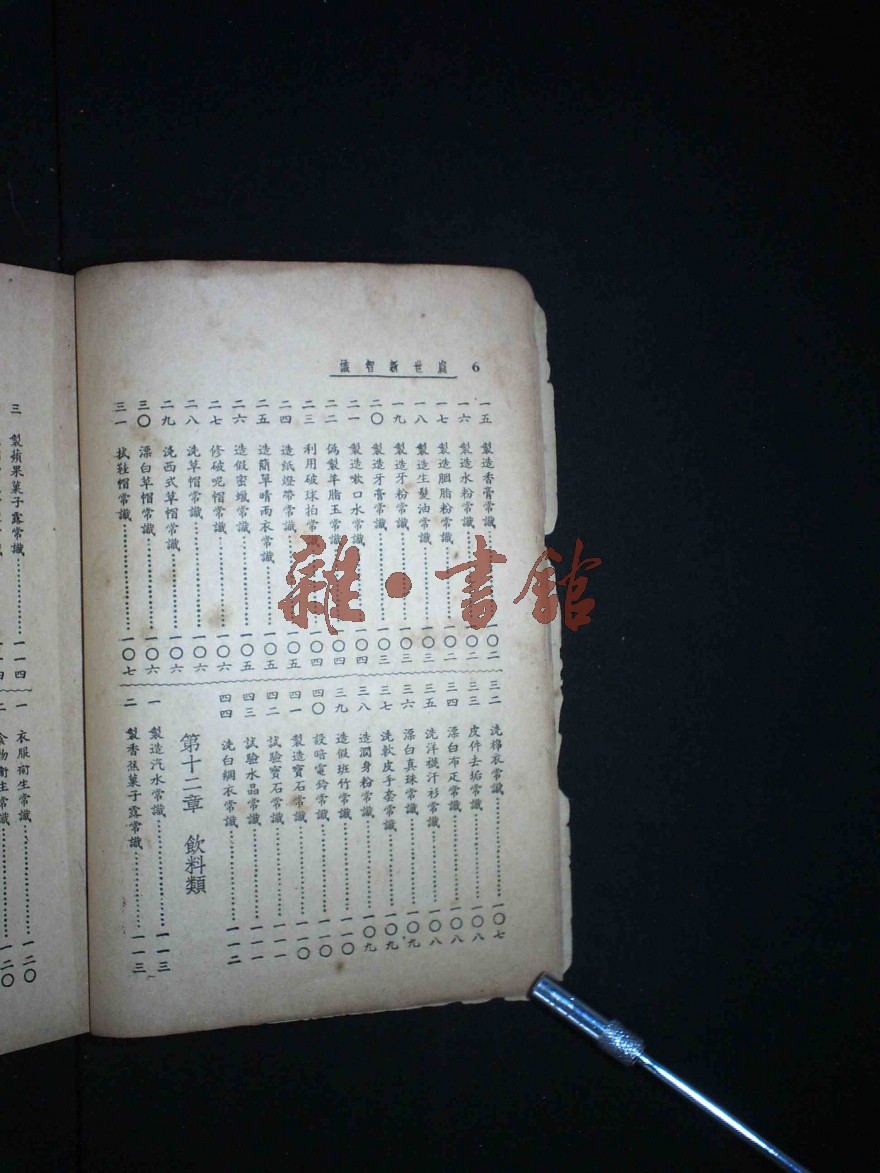 6 處世新智識
一五 製造香膏常識 一〇二
一六 製造水粉常識 一〇二
一七 製造胭脂粉常識 一〇二
一八 製造生髮油常識 一〇三
一九 製造牙粉常識 一〇三
二〇 製造牙膏常識 一〇三
二一 製造嗽口水常識 一〇四
二二 偽製羊脂玉常識 一〇四
二三 利用破球拍常識 一〇四
二四 造紙燈帶常識 一〇五
二五 造簡單晴雨衣常識 一〇五
二六 造假密蠟常識 一〇五
二七 修破呢帽常識 一〇六
二八 洗草帽常識 一〇六
二九 洗西式草帽常識 一〇六
三〇 漂白草帽常識 一〇六
三一 拭鞋帽常識 一〇七
三二 洗棉衣常識 一〇七
三三 皮件去垢常識 一〇八
三四 漂白布疋常識 一〇八
三五 洗洋襪汗衫常識 一〇八
三六 漂白真珠常識 一〇九
三七 洗軟皮手套常識 一〇九
三八 造潤身粉常識 一〇九
三九 造假班竹常識 一一〇
四〇 設暗電鈴常識 一一〇
四一 製造寶石常識 一一〇
四二 試驗寶石常識 一一一
四三 試驗水晶常識 一一一
四四 洗白綢衣常識 一一二
第十二章 飲料類
一 製造汽水常識 一一三
二 製香蕉菓子露常識 一一三
三 製蘋果菓子露常識 一一四
一 衣服衛生常識 一二〇
二 食物衛生常識 一二〇
雜·書館